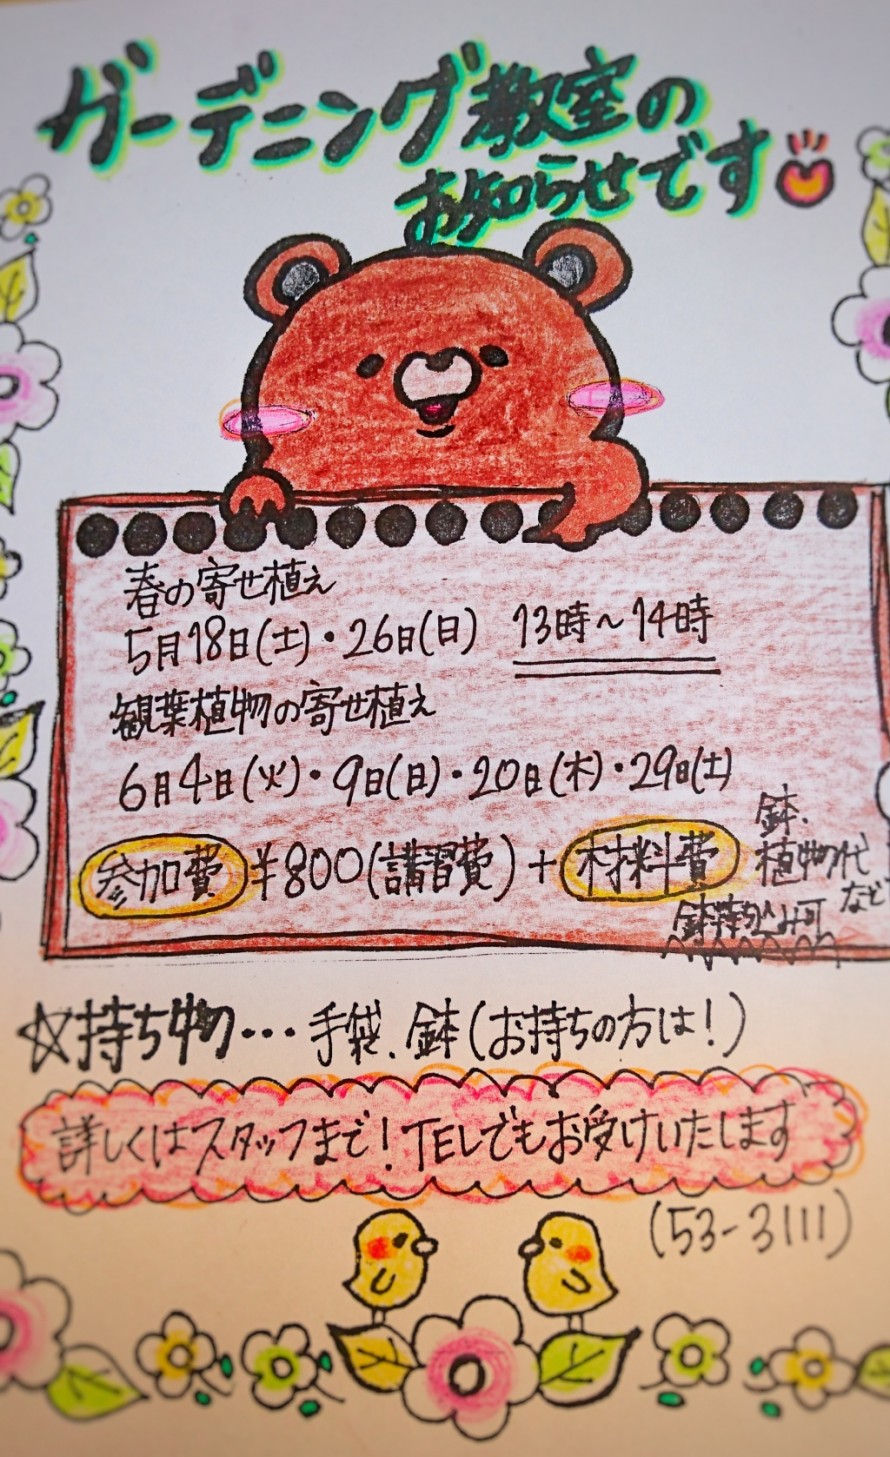 ガーデニング教室の
お知らせです
春の寄せ植え
5月18日(土)・26日(日) 13時〜14時
観葉植物の寄せ植え
6月4日(火)・9日(日)・20日(木)・29日(土)
参加費 ¥800(講習費)+材料費 鉢、
植物代
など
鉢持ち込み可
☆持ち物・・・手袋、鉢(お持ちの方は!)
詳しくはスタッフまで!TELでもお受けいたします
(53-3111)